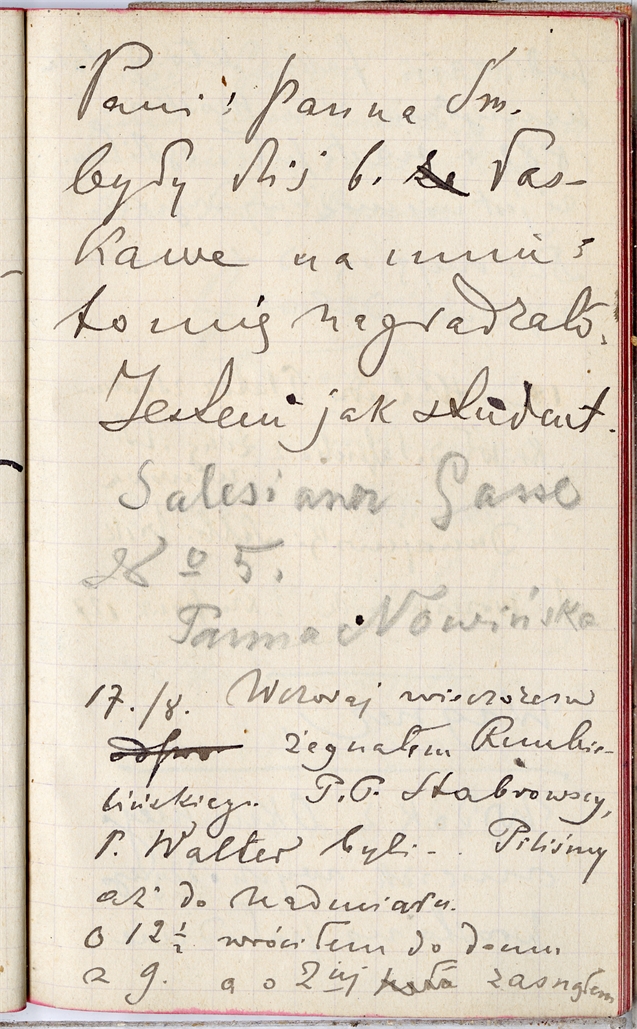 Pani i panna Sm.
były dziś b. łas-
kawe na mnie i
to mię nagradzało.
Jestem jak student.
Salesianer Gasse
No 5.
Panna Nowińska
17./8. Wczoraj wieczorem
żegnałem Rembie-
lińskiego. P.P. Stabrowscy,
P. Walter byli - . Piliśmy
aż do nadmiaru.
o 12 1/2 wróciłem do domu
z g. a o 2iej zasnąłem